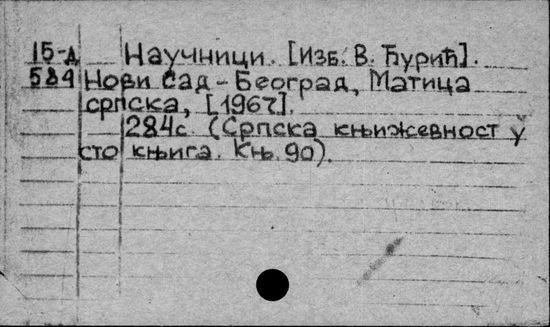 15-д Научници. [Изб. В. Ђурић].
589 Нови Сад - Београд, Матица
српска, [1967].
284с. (Српска књижевност у
сто књига. Књ. 90).